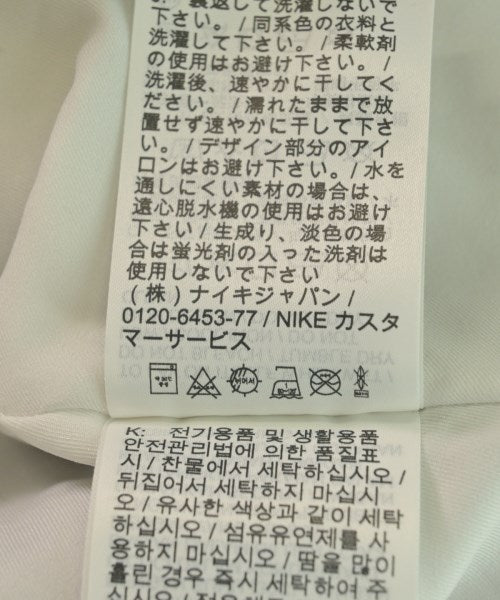 裏返して洗濯しないで
下さい。/ 同系色の衣料と
洗濯して下さい。/ 柔軟剤
の使用はお避け下さい。/
洗濯後、速やかに干してく
ださい。/ 濡れたままで放
置せず速やかに干して下さ
い。/ デザイン部分のアイ
ロンはお避け下さい。/ 水を
通しにくい素材の場合は、
遠心脱水機の使用はお避け
下さい / 生成り、淡色の場
合は蛍光剤の入った洗剤は
使用しないで下さい
(株) ナイキジャパン /
0120-6453-77 / NIKE カスタ
マーサービス
K: 전기용품 및 생활용품
안전관리법에 의한 품질표
시 / 찬물에서 세탁하십시오 /
뒤집어서 세탁하지 마십시
오 / 유사한 색상과 같이 세탁
하십시오 / 섬유유연제를 사
용하지 마십시오 / 땀을 많이
흘린 경우 즉시 세탁하여 주
십시오